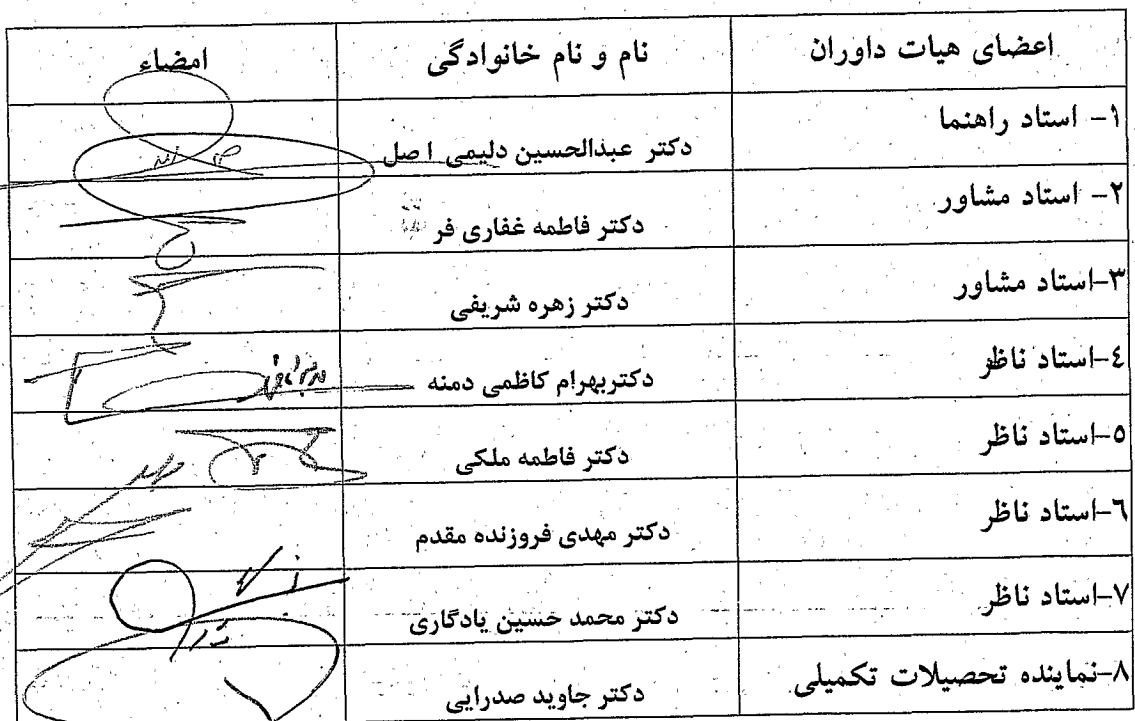 اعضای هیات داوران نام و نام خانوادگی امضاء
۱- استاد راهنما دکتر عبدالحسین دلیمی اصل
۲- استاد مشاور دکتر فاطمه غفاری فر
۳-استاد مشاور دکتر زهره شریفی
٤-استاد ناظر دکتربهرام کاظمی دمنه
٥-استاد ناظر دکتر فاطمه ملکی
٦-استاد ناظر دکتر مهدی فروزنده مقدم
۷-استاد ناظر دکتر محمد حسین یادگاری
۸-نماینده تحصیلات تکمیلی دکتر جاوید صدرایی